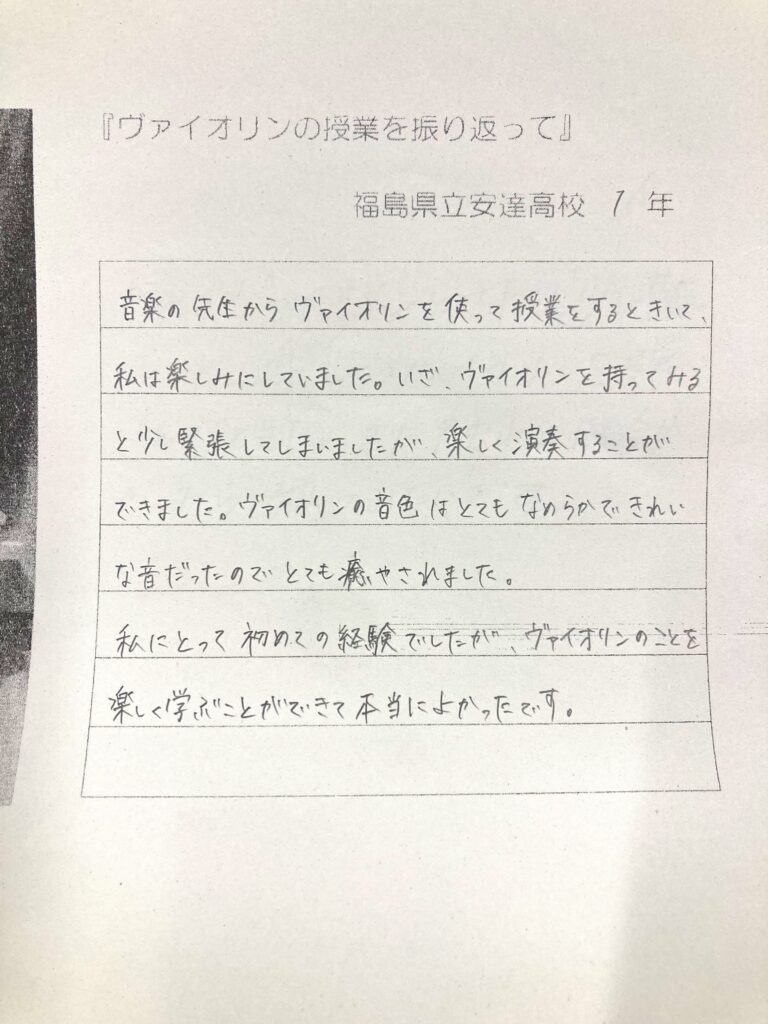 『ヴァイオリンの授業を振り返って』
福島県立安達高校 1 年
音楽の先生からヴァイオリンを使って授業をするときいて、
私は楽しみにしていました。いざ、ヴァイオリンを持ってみる
と少し緊張してしまいましたが、楽しく演奏することが
できました。ヴァイオリンの音色はとてもなめらかできれい
な音だったのでとても癒やされました。
私にとって初めての経験でしたが、ヴァイオリンのことを
楽しく学ぶことができて本当によかったです。